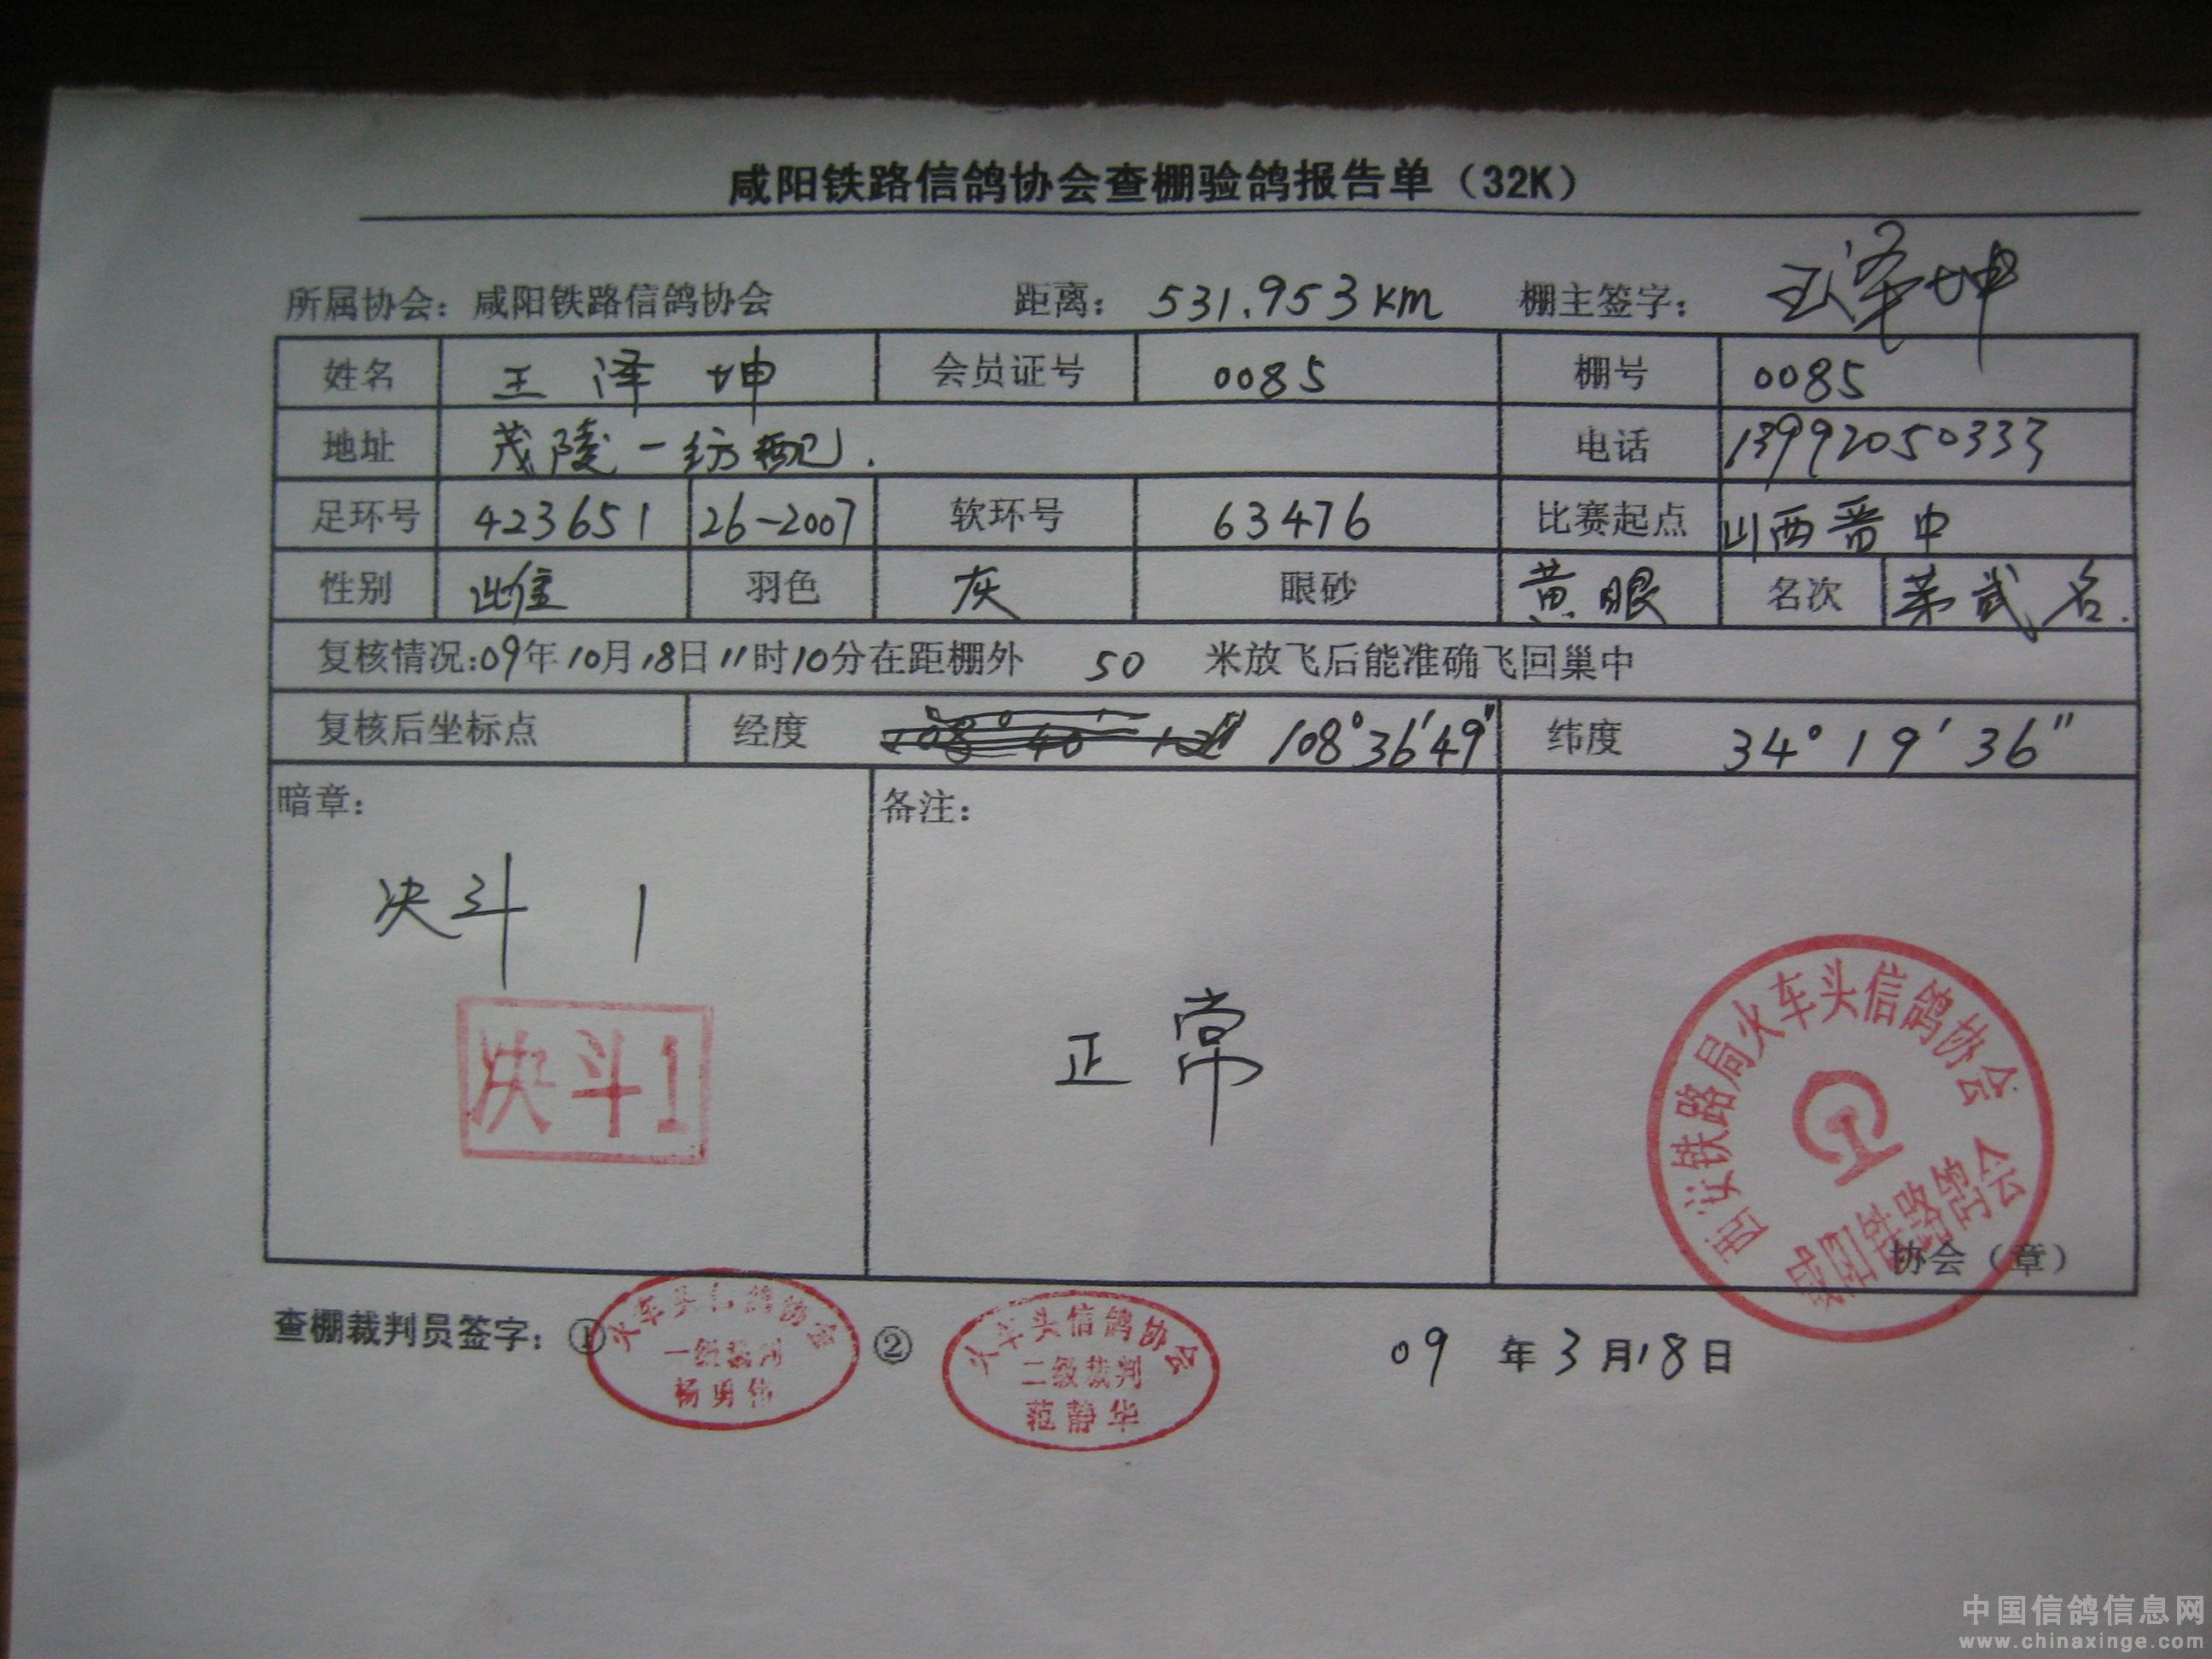 咸阳铁路信鸽协会查棚验鸽报告单（32K）
所属协会：咸阳铁路信鸽协会 距离：531.953km 棚主签字：王泽坤
姓名 王泽坤 会员证号 0085 棚号 0085
地址 茂陵一纺 电话 13992050333
足环号 423651 26-2007 软环号 63476 比赛起点 山西晋中
性别 雌 羽色 灰 眼砂 黄眼 名次 第贰名.
复核情况:09年10月18日11时10分在距棚外 50 米放飞后能准确飞回巢中
复核后坐标点 经度 108°36′49″ 纬度 34°19′36″
暗章： 备注：
决斗 1
决斗1
正常
西安铁路局火车头信鸽协会
咸阳铁路鸽会
协会（章）
查棚裁判员签字：① ②
火车头信鸽协会
一级裁判
杨勇
火车头信鸽协会
二级裁判
范静华
09年3月18日
中国信鸽信息网
www.chinaxinge.com